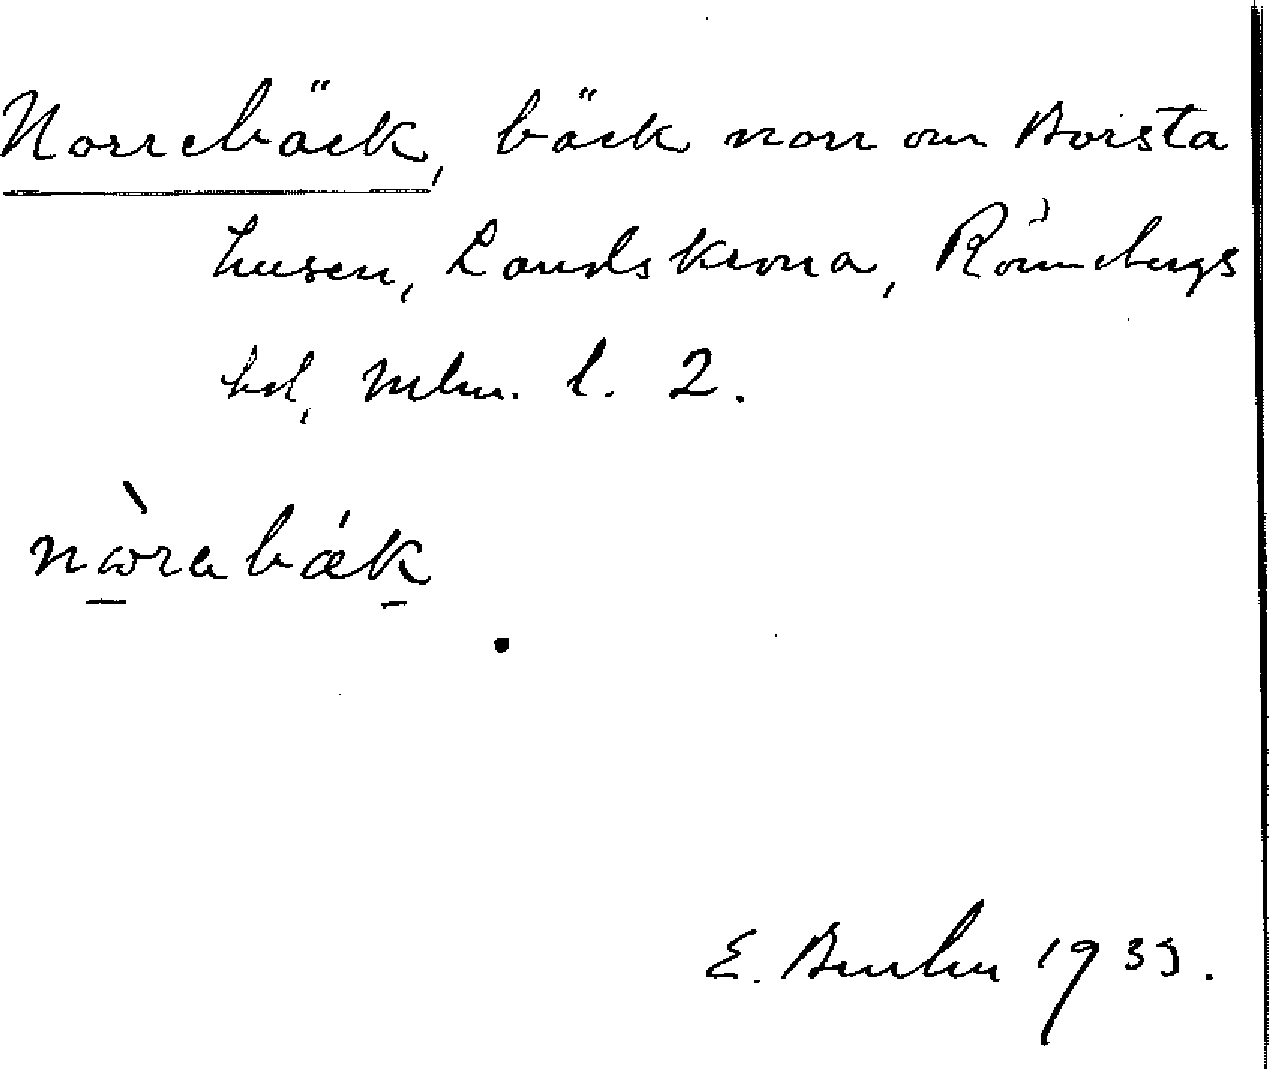 Norrebäck, bäck norr om Borsta
husen, Landskrona, Rönnebergs
hd, Mlm. l. 2.
nòrabák
E. 1933.